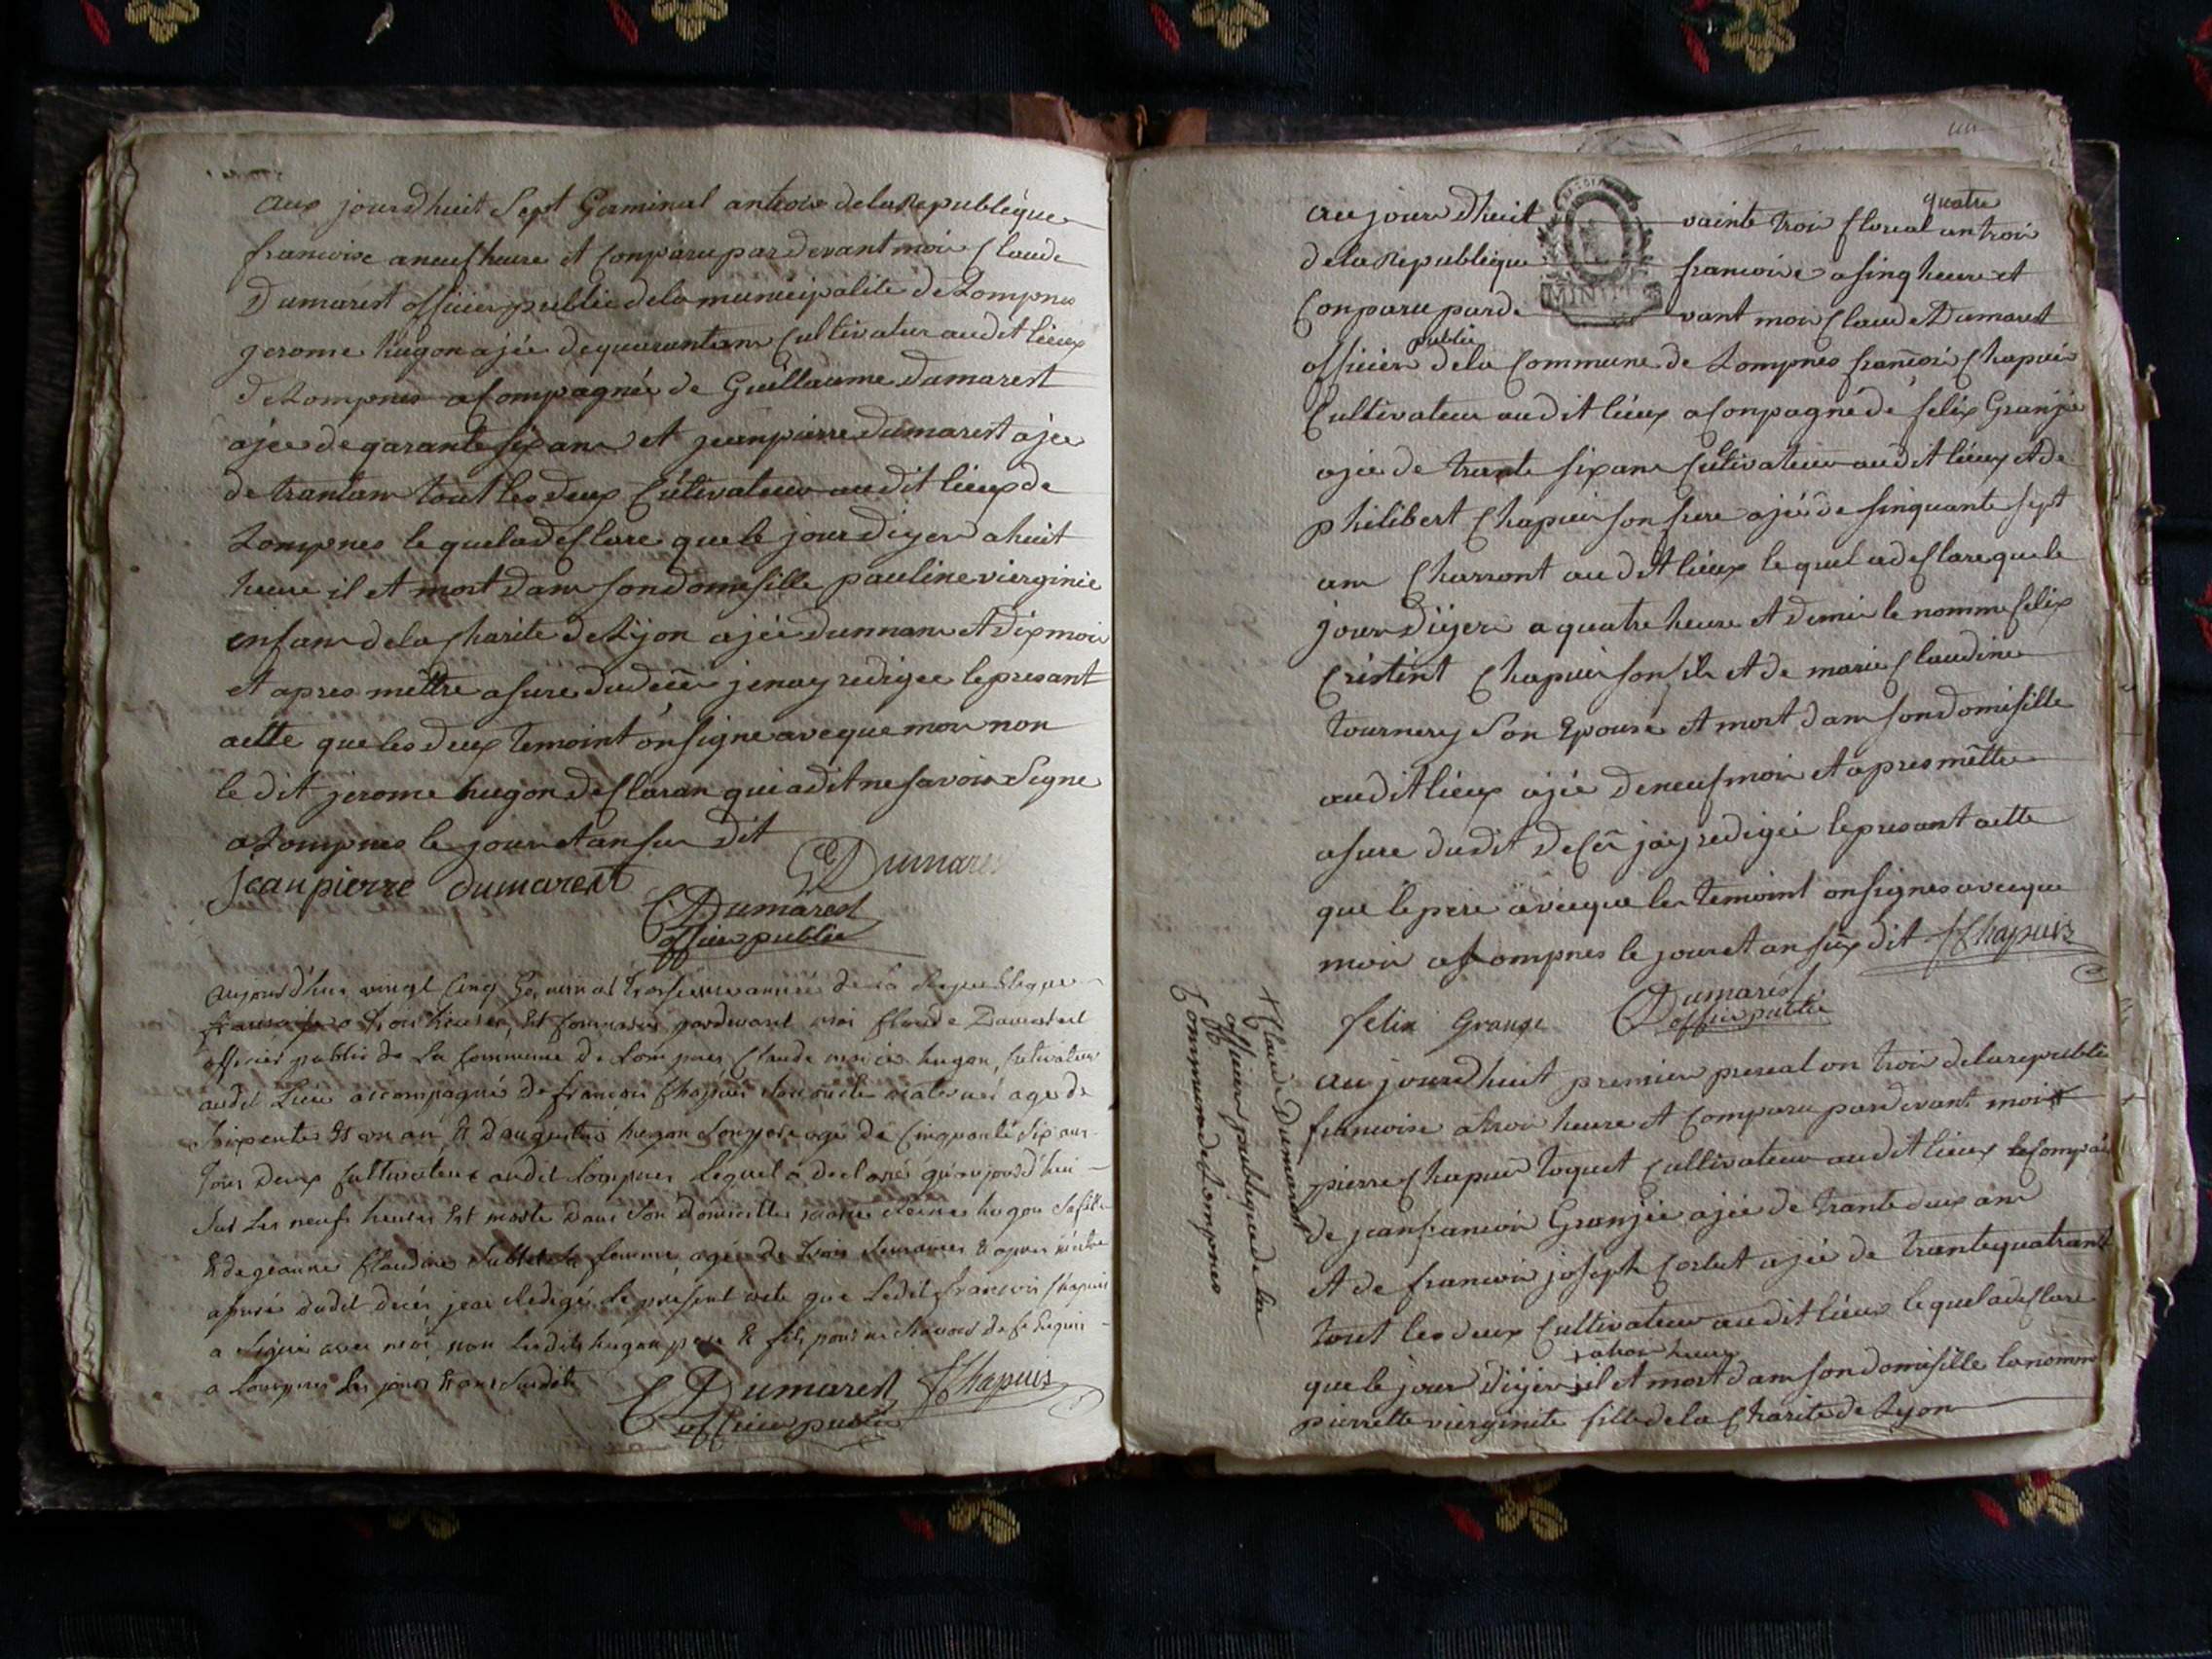 aux jourdhuit Sept Germinal antrois delaRepubleque
francoise aneuf heure et Conparu pardevant moi Claude
Dumarest officier public dela municipalité de Lompnes
jerome hugon ajée dequarantans Cultivateur audit lieux
de Lompnes aCompagnée de Guillaume Dumarest
ajee de garante six ans et jeanpierre Dumarest ajee
de trantans tout les deux Cultivateur audit lieux de
Lompnes le quel adeClare que le jour diyer a huit
heure il et mort dans son domesille pauline vierginie
enfans de la Charite de Lyon ajée dunnans et dix mois
et apres mettre asure dudecè jenay redigee le presant
actte que les deux temoint onsigne aveque moi non
le dit jerome hugon deClaran qui adit ne savoir Signe
a Lompnes le jour et ansu dit
jeanpierre dumarest GDumarest
CDumarest
officier public
aujourd'hui vingt Cinq Germinal troisieme année de la Republeque
francaise a trois heures, Est Comparu pardevant moi Claude Dumarest
officier public de La Commune de Lompnes Claude marie hugon, Cultivateur
audit Lieu accompagné de françois Chapuis Son oncle maternel agé de
soixente Et un an Et d'augustin hugon Son pere agé de Cinquante Six ans
tous deux Cultivateurs audit Lompnes Lequel a declaré qu'aujourd'hui
Sur Les neufs heures Est morte dans Son domicille marie Reine hugon Sa fille
Et de jeanne Claudine sa femme, agée de trois Semaines & apres m'etre
assuré dudit decés jeai Redigé Le présent acte que Ledit françois Chapuis
a Signé avec moi, non Lesdits hugon pere & fils pour ne Savoir de ce Requis
a Lompnes Les jours & ans Susdits
CDumarest fChapuis
officier public
au jour dhuit vainte trois floreal antrois
quatre
dela Republeque francoise a sinq heure et
MINUTE
Conparu parde vant moi Claude Dumarest
officier public dela Commune de Lompnes francois Chapuis
Cultivateur audit lieux aConpagné de felix Granje
ajée de trante six ans Cultivateur audit lieux et de
philibert Chapuis son frere ajée de sinquante sept
ans Charront audit lieux le quel adeClare que le
jour diyer a quatre heure et demi le nomme felix
Cristint Chapuis son fils et de marie Claudine
tournery Son Epouse et mort dans son domisille
audit lieux ajée de neuf mois et apres mettre
asure dudit deCè jay redigée le presant actte
que le pere aveque les temoint onsignes aveque
moi a Lompnes le jour et an sux dit fChapuis
felix Grange CDumarest
officier public
Claude Dumarest
officier publique de la
Commune de Lompnes
au jourdhuit premier prerial an trois dela republi
francoise a trois heure et Comparu pardevant moi
pierre Chapuis toquet Cultivateur audit lieux aCompaé
de jeanfrancois Granjée ajée de trante deux ans
et de francois joseph Corlet ajée de trante quatrans
tout les deux Cultivateur audit lieux le quel adeClare
que le jour diyer a trois heure il et mort dans son domisille la nomme
pierrette vierginite fille de la Charite de Lyon